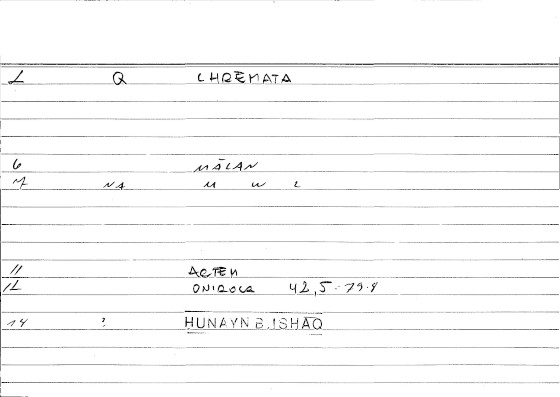 1 Q CHRĒMATA
6 MĀLAN
7 NA M W L
11 ACTEM
12 ONIROCR 42,5-79.8
14 ? HUNAYN B. ISHAQ